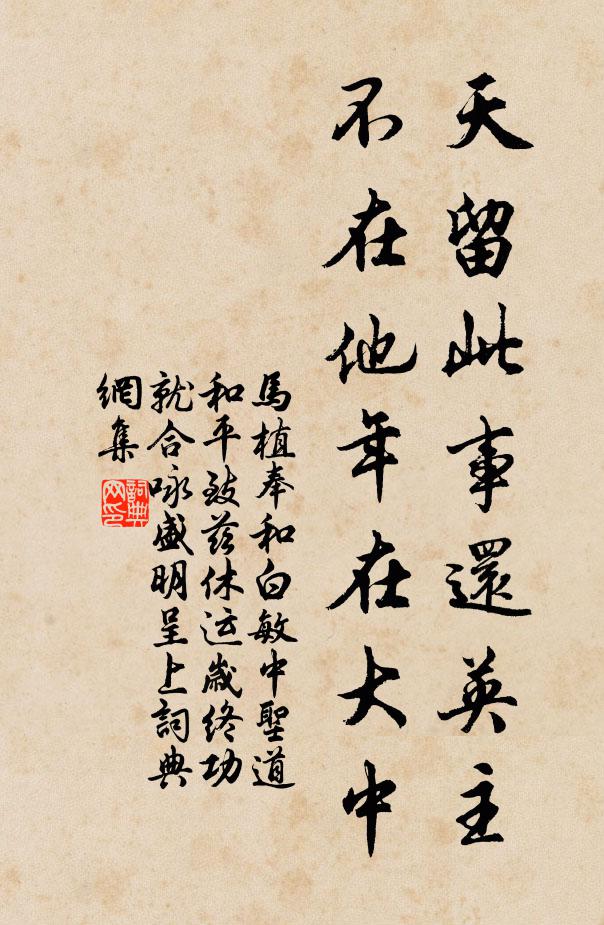 天留此事還英主
不在他年在大中
馬植奉和白敏中聖道
和平致茲休運歲終功
就合詠盛明呈上詞典
網集
詞典
网印